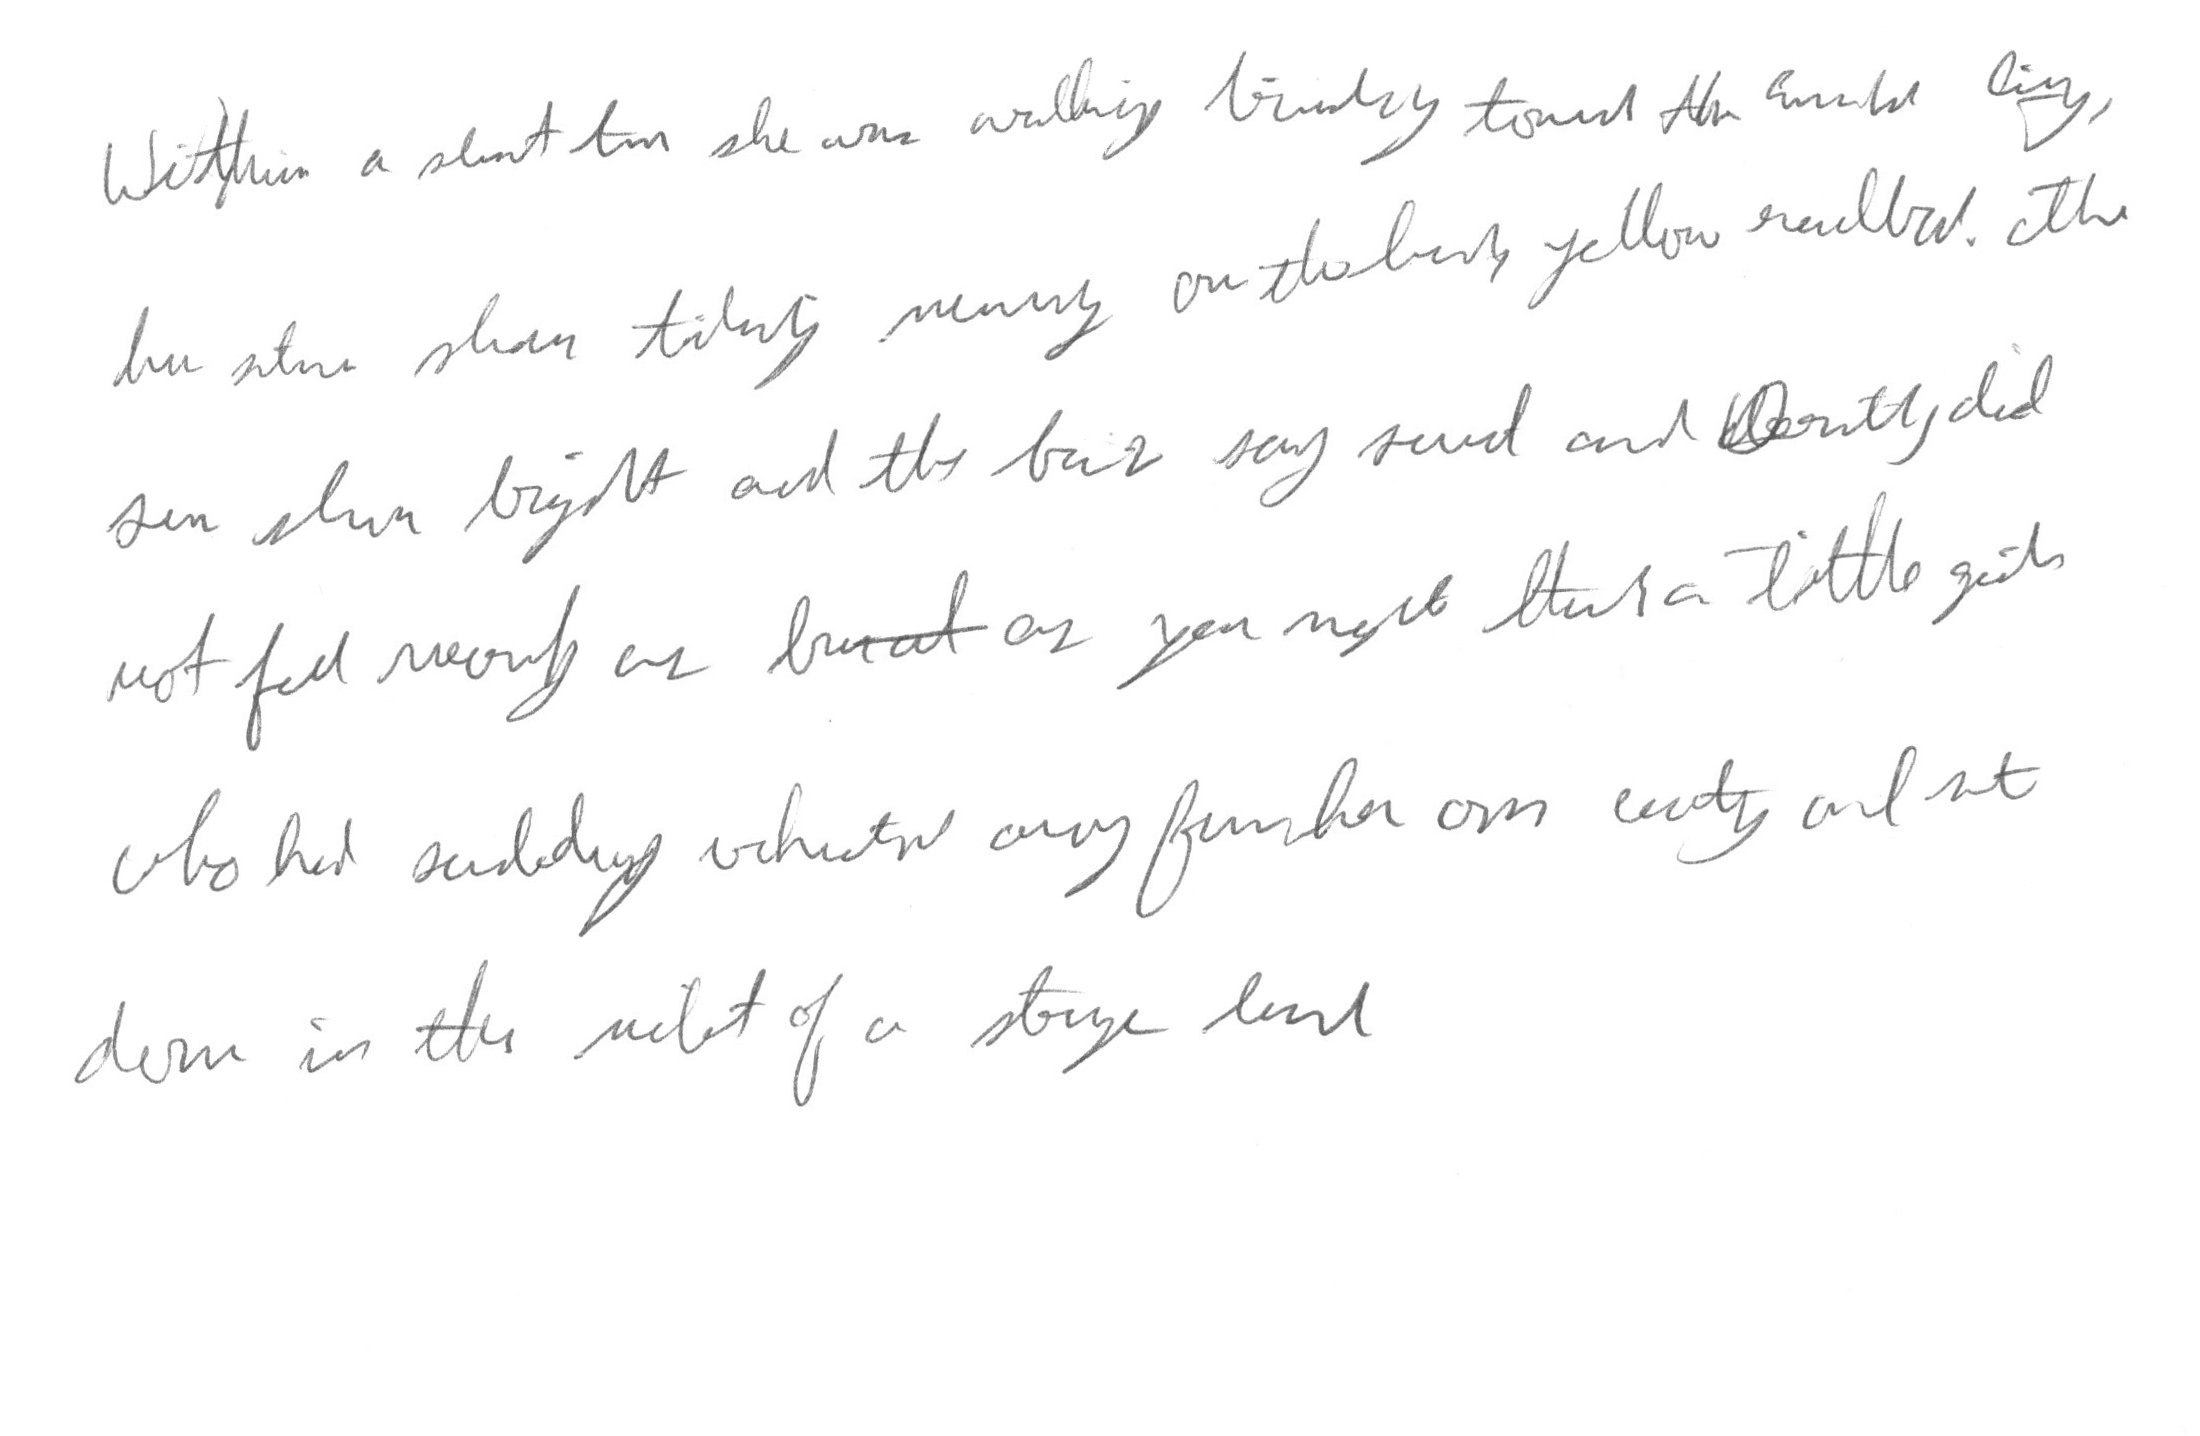 Within a short time she was walking briskly toward the Emerald City,
her silver shoes tinkling merrily on the hard, yellow roadbed. The
sun shone bright and the birds sang sweet and Dorothy did
not feel nearly as bad as you might think a little girl
who had suddenly whisked away from her own country and set
down in the midst of a strange land